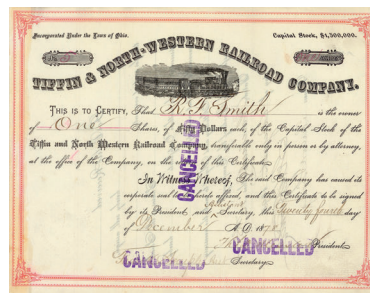 Incorporated Under the Laws of Ohio. Capital Stock, $1,500,000.
TIFFIN & NORTH-WESTERN RAILROAD COMPANY.
THIS IS TO CERTIFY, That R. T. Smith is the owner
of One Share, of Fifty Dollars each, of the Capital Stock of the
Tiffin and North Western Railroad Company, transferable only in person or by attorney,
at the office of the Company, on the of this Certificate.
In Witness Whereof, The said Company has caused its
corporate seal to be hereto affixed, and this Certificate to be signed
by its President and Secretary, this Twenty fourth day
of December A.D. 18
CANCELLED
CANCELLED President
CANCELLED Secretary